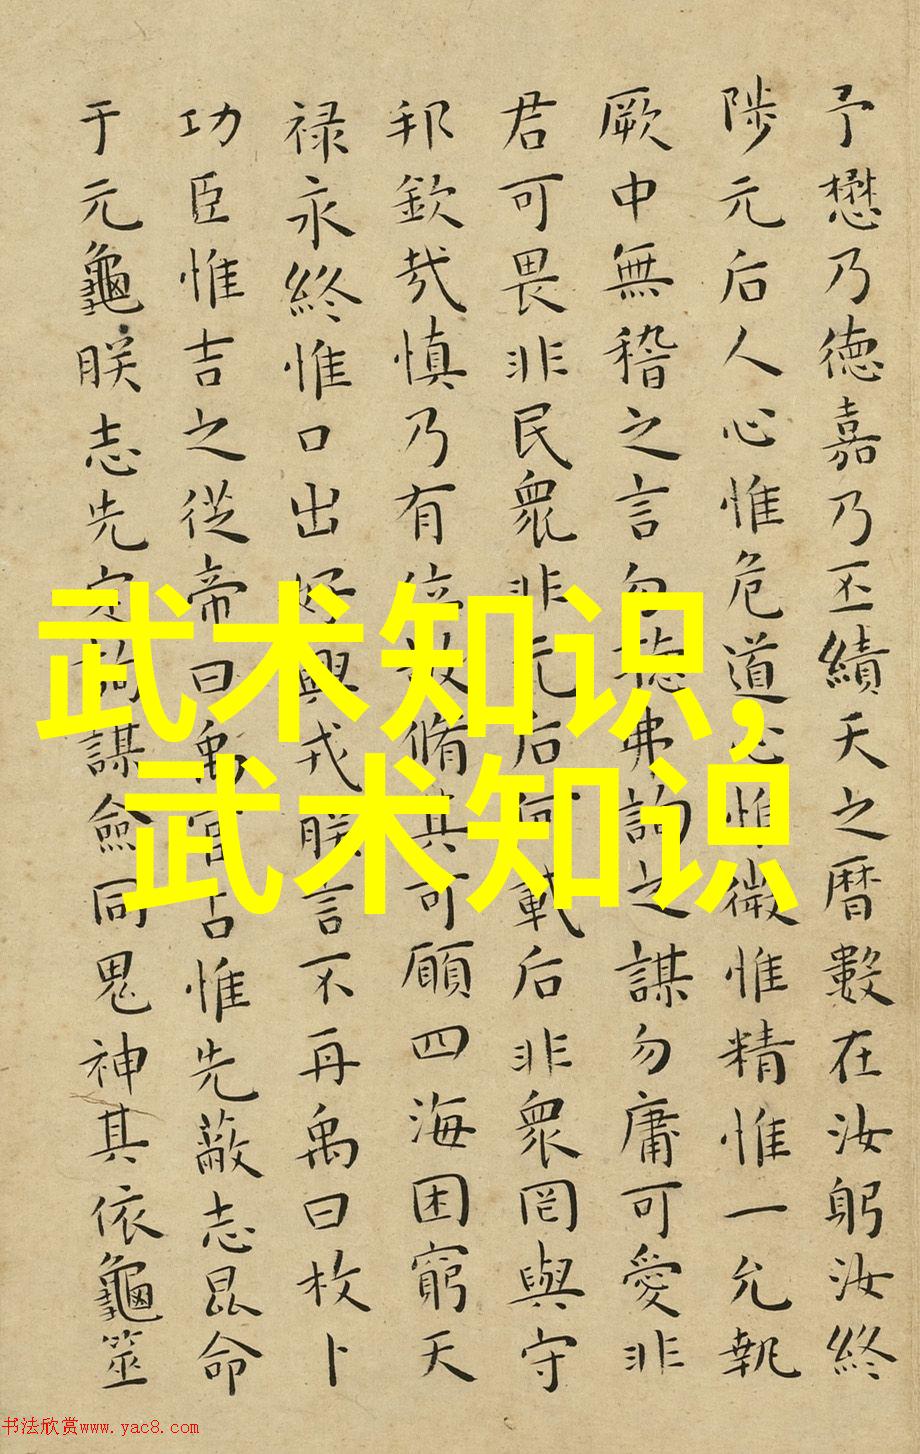 予懋乃德嘉乃丕績天之曆數在汝躬汝終
陟元后人心惟危道心惟微惟精惟一允執
厥中無稽之言勿聽弗詢之謀勿庸可愛非
君可畏非民衆非元后何載后非衆罔與守
邦欽哉慎乃有位敬脩其可願四海困窮天
禄永終惟口出好興戎朕言不再禹曰枚卜
功臣惟吉之從帝曰禹官占惟先蔽志昆命
于元龜朕志先定詢謀僉同鬼神其依龜筮
武术知识,
武术知识
书法欣赏www.yac8.com